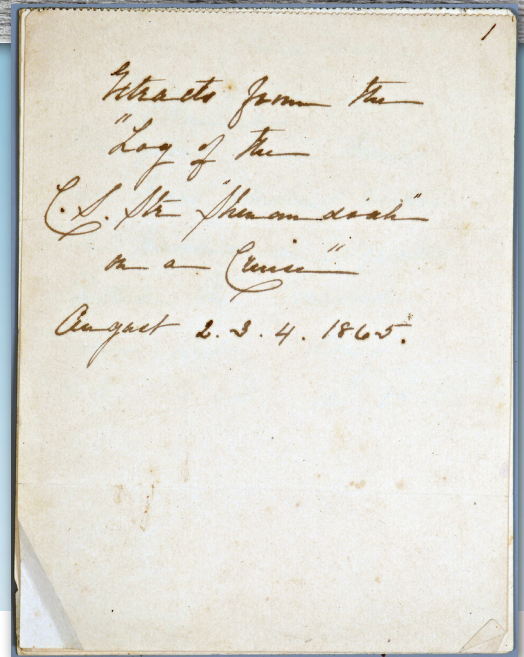 1
Extracts from the
"Log of the
C. S. Str "Shenandoah"
on a Cruise"
August 2. 3. 4. 1865.